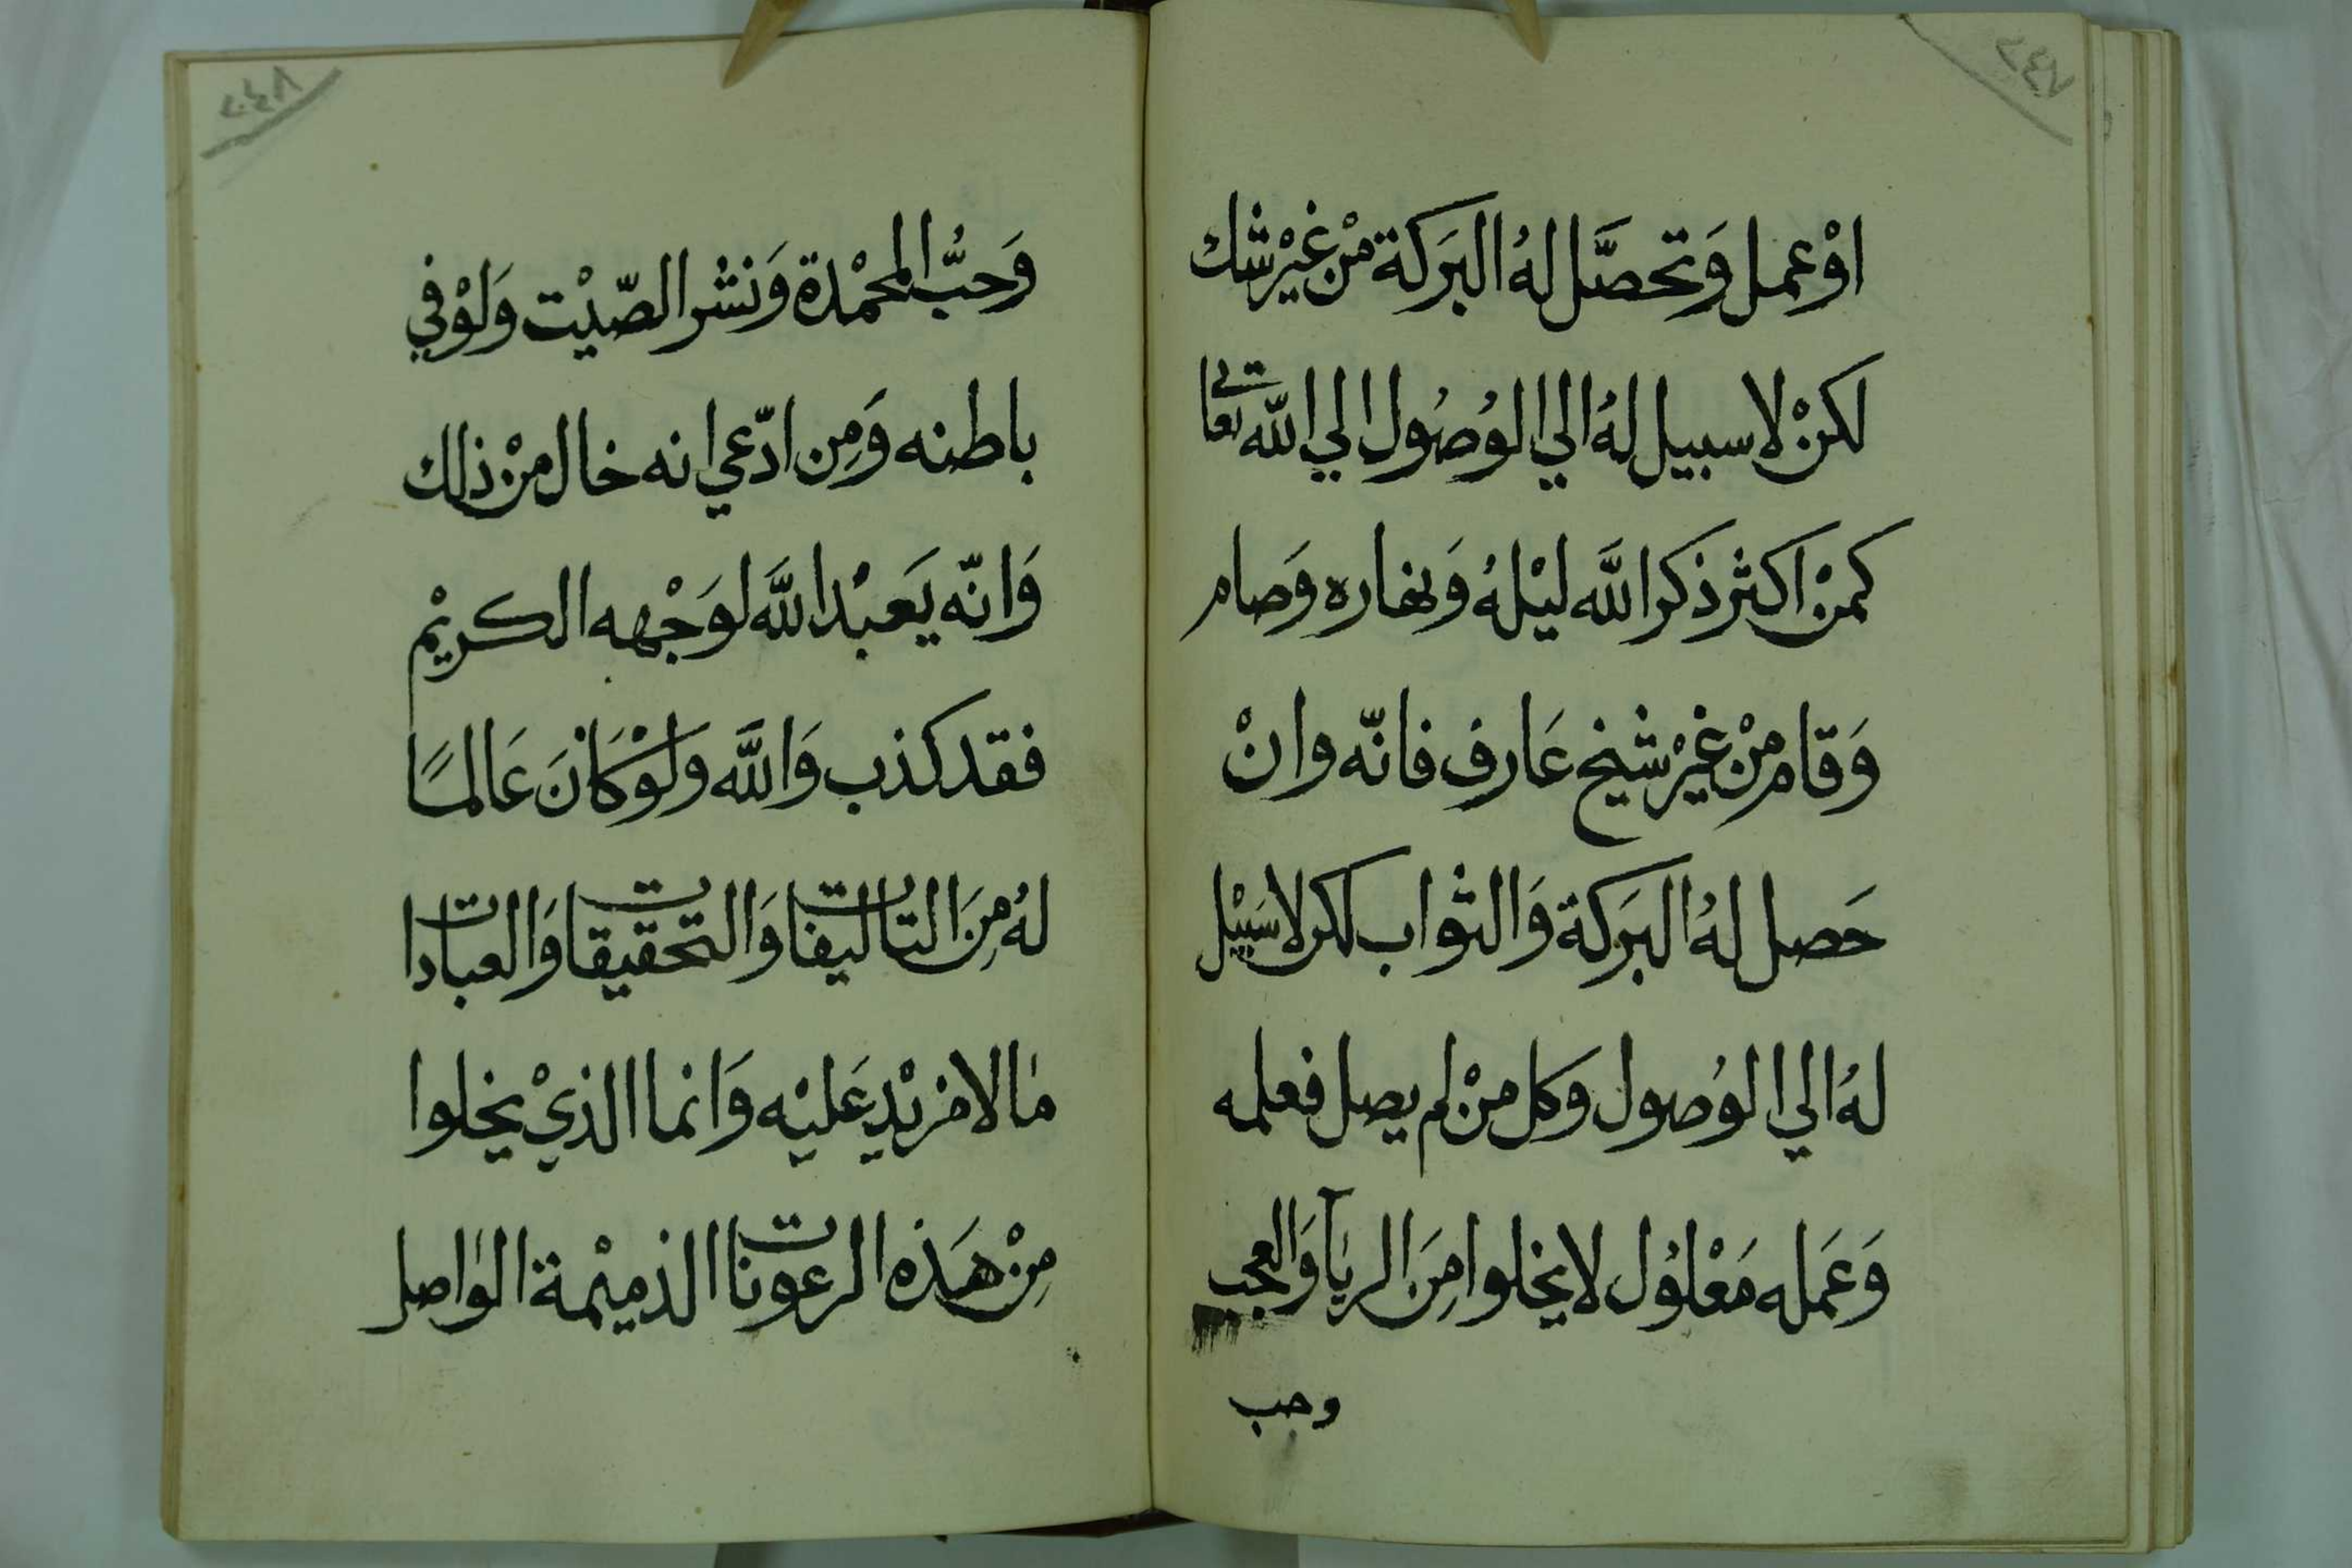 اوْ عمل وَتحصَّل لهُ البَركة منْ غيْر شك
لكنْ لا سبيل لهُ الي الوُصُول الي اللّه تعالي
كمنْ اكثر ذكر اللَّه ليْلهُ وَنهاره وَصام
وَقام منْ غيْر شيْخ عَارف فانّه وانْ
حَصل لهُ البَركة وَالثواب لكن لا سَبيْل
لهُ الي الوُصول وَكل منْ لم يصل فعلمه
وَعَمله مَعْلوُل لا يخلوا مِنَ الريآَ وَالعجب
وحب
وَحبُّ المحْمْدة وَنشْر الصّيْت وَلوْ في
باطنه وَمِن ادّعي انه خال منْ ذلك
وَانّه يَعبْد اللَّه لوَجْهه الكريْم
فقد كذب وَاللَّه وَلوْ كاَنَ عَالمًا
لهُ مِنَ التاليفات وَالتحقيقات وَالعبادات
ما لا مزيْد عَليْه وَانما الذيْ يخلوا
مِنْ هَذه الرعونات الذميْمة الواصل